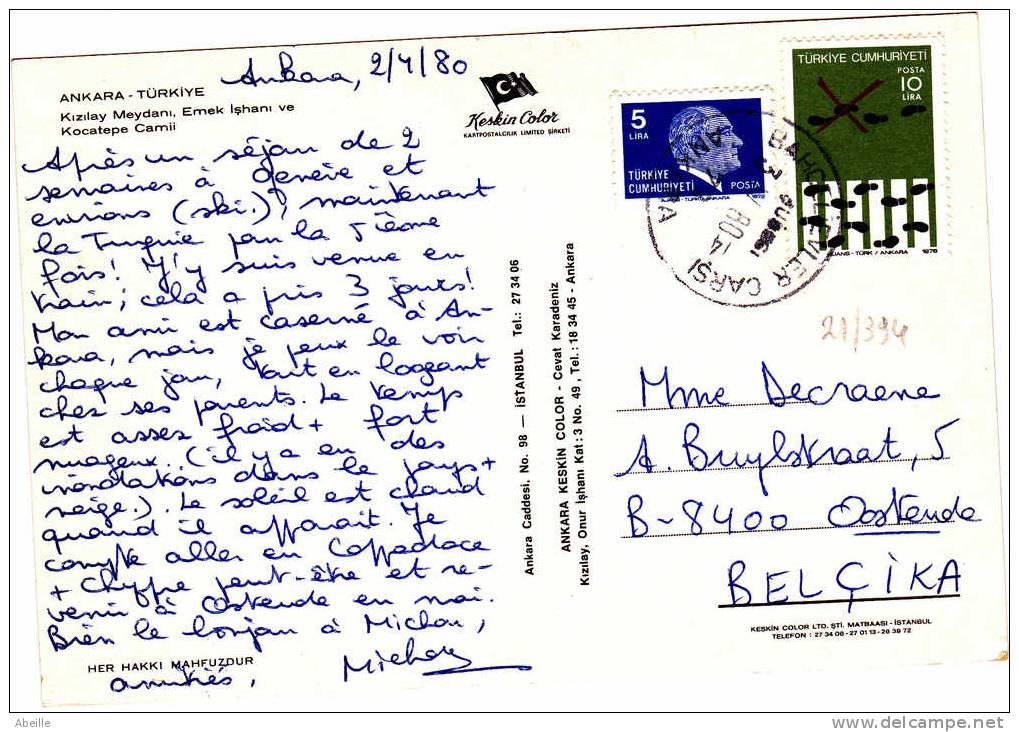 Ankara, 2/4/80
ANKARA - TÜRKİYE
Kızılay Meydanı, Emek İşhanı ve
Kocatepe Camii
Keskin Color
KARTPOSTALCILIK LIMITED ŞİRKETİ
Après un séjour de 2
semaines à Genève et
environs (ski!), maintenant
la Turquie pour la 5ième
fois! J'y suis venue en
train; cela a pris 3 jours!
Mon ami est caserné à An-
kara, mais je peux le voir
chaque jour, tout en logeant
chez ses parents. Le temps
est assez froid + fort
nuageux. (il y a eu des
inondations dans le pays +
neige.). Le soleil est chaud
quand il apparait. Je
compte aller en Cappadoce
+ Chypre peut-être et re-
venir à Ostende en mai.
Bien le bonjour à Michou,
amitiés,
HER HAKKI MAHFUZDUR
Ankara Caddesi. No. 98 — İSTANBUL Tel.: 27 34 06
ANKARA KESKİN COLOR - Cevat Karadeniz
Kızılay, Onur İşhanı Kat: 3 No. 49, Tel.: 18 34 45 - Ankara
5
LİRA
TÜRKİYE
CUMHURİYETİ
POSTA
TÜRKİYE CUMHURİYETİ
POSTA
10
LİRA
AJANS - TÜRK / ANKARA
1978
BAHÇELİEVLER ÇARŞI
ANKARA
21/394
Mme Decraene
A. Buylstraat, 5
B-8400 Oostende
BELÇİKA
KESKİN COLOR LTD. ŞTİ. MATBAASI - İSTANBUL
TELEFON : 27 34 06 - 27 01 13 - 20 39 72
Abeille
www.delcampe.net